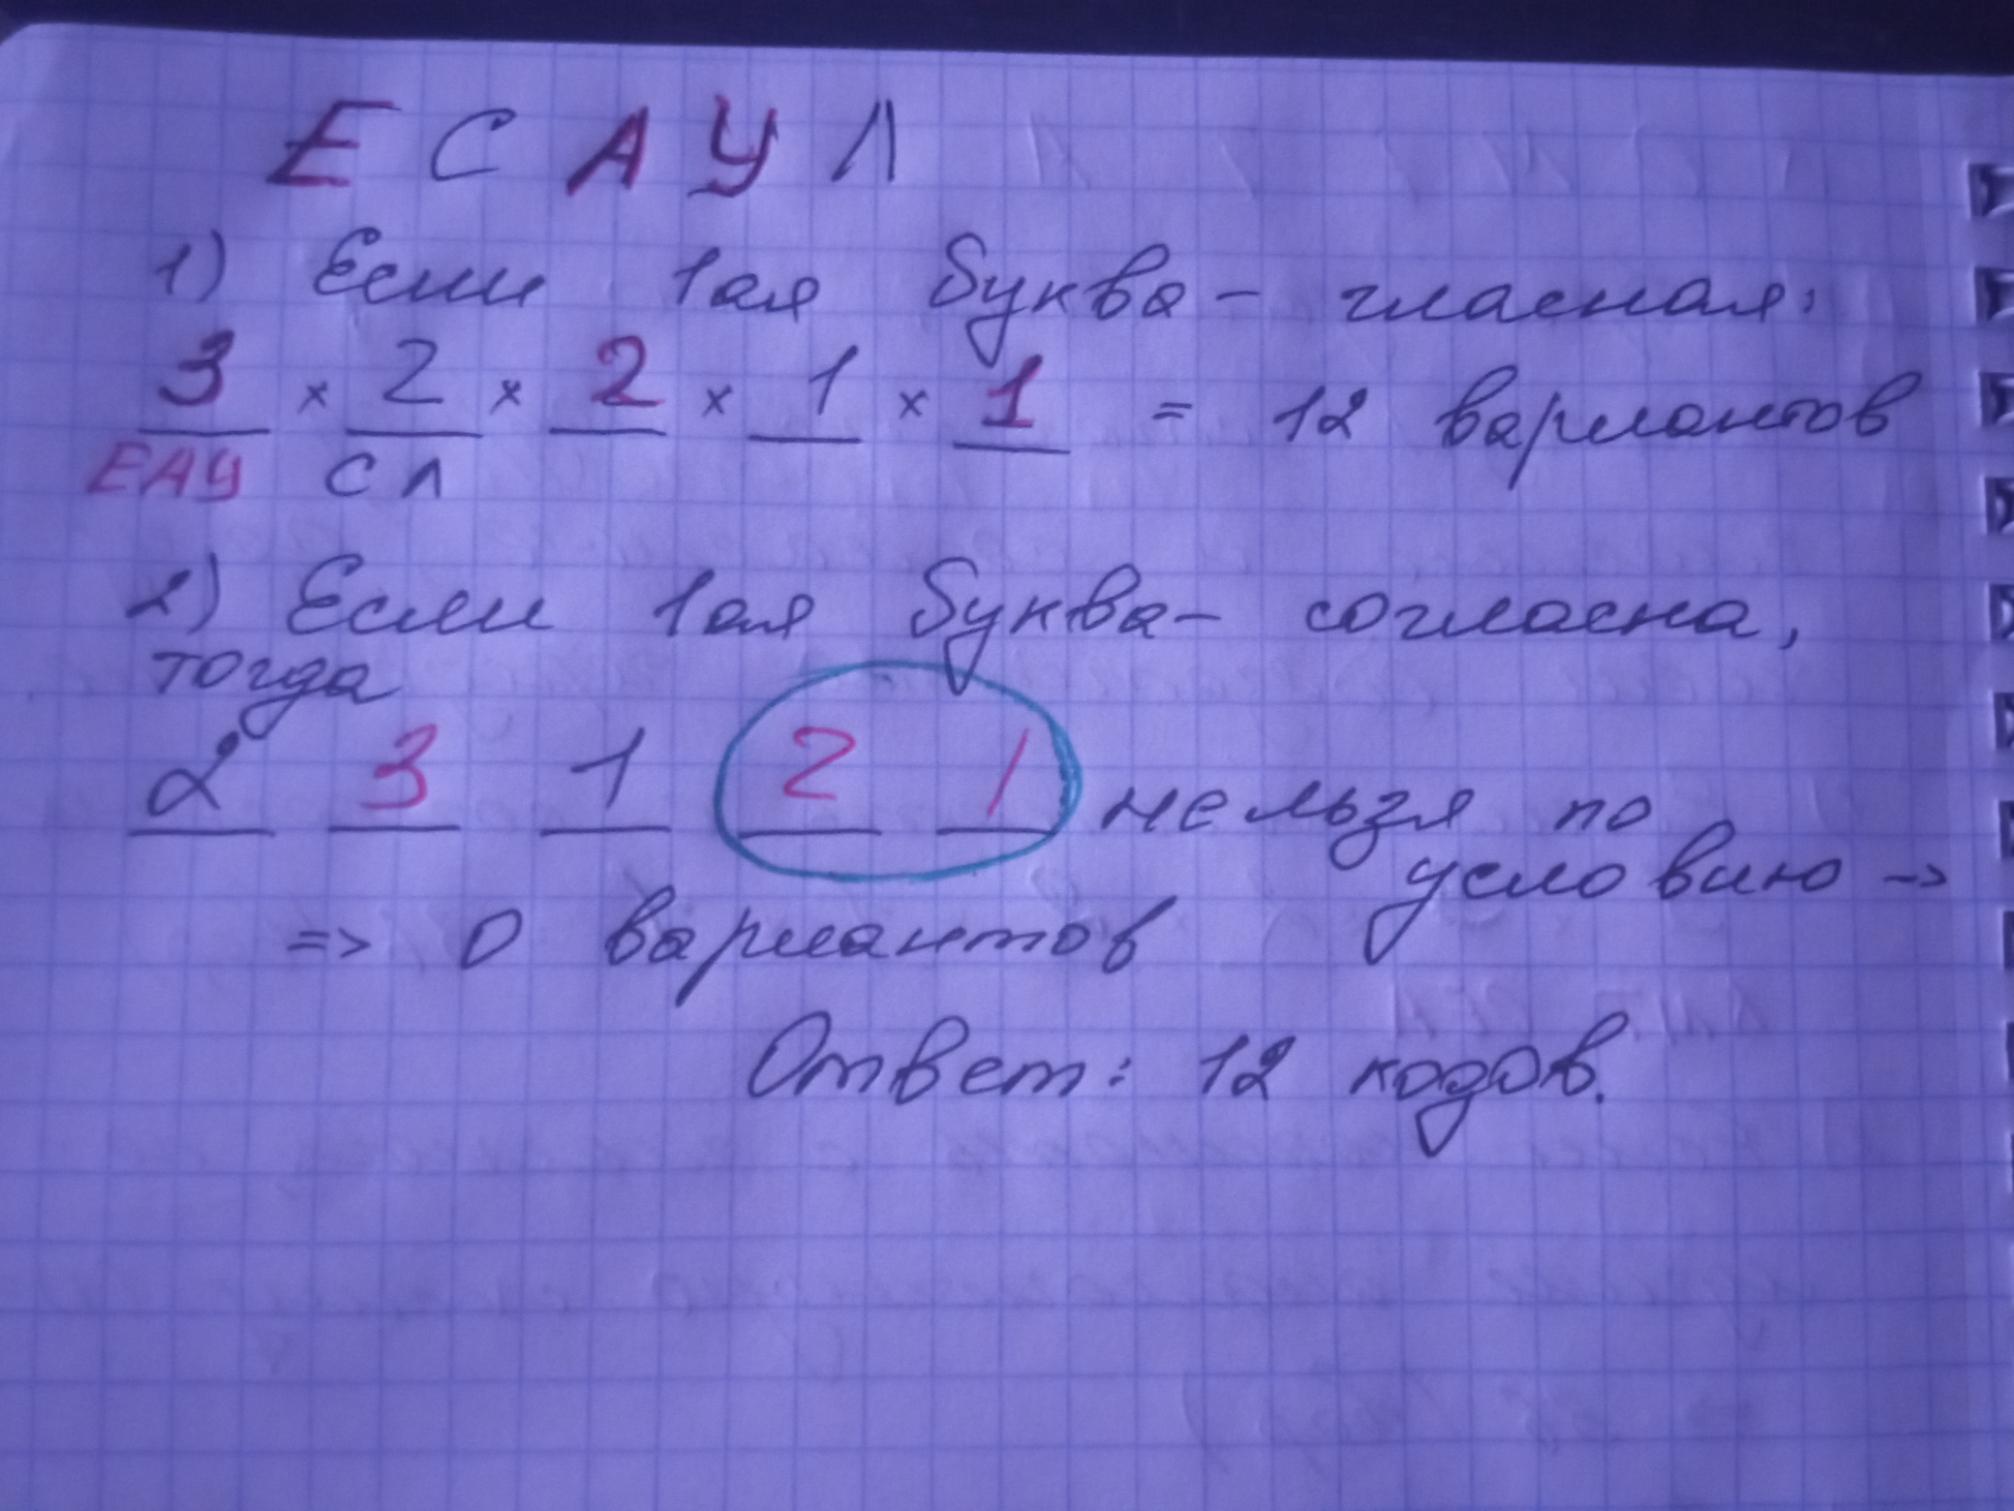 Е С А У Л
1) Если 1ая буква - гласная:
3 × 2 × 2 × 1 × 1 = 12 вариантов
ЕАУ СЛ
2) Если 1ая буква - согласна,
тогда
2 3 1 2 1 нельзя по
условию ->
=> 0 вариантов
Ответ: 12 кодов.